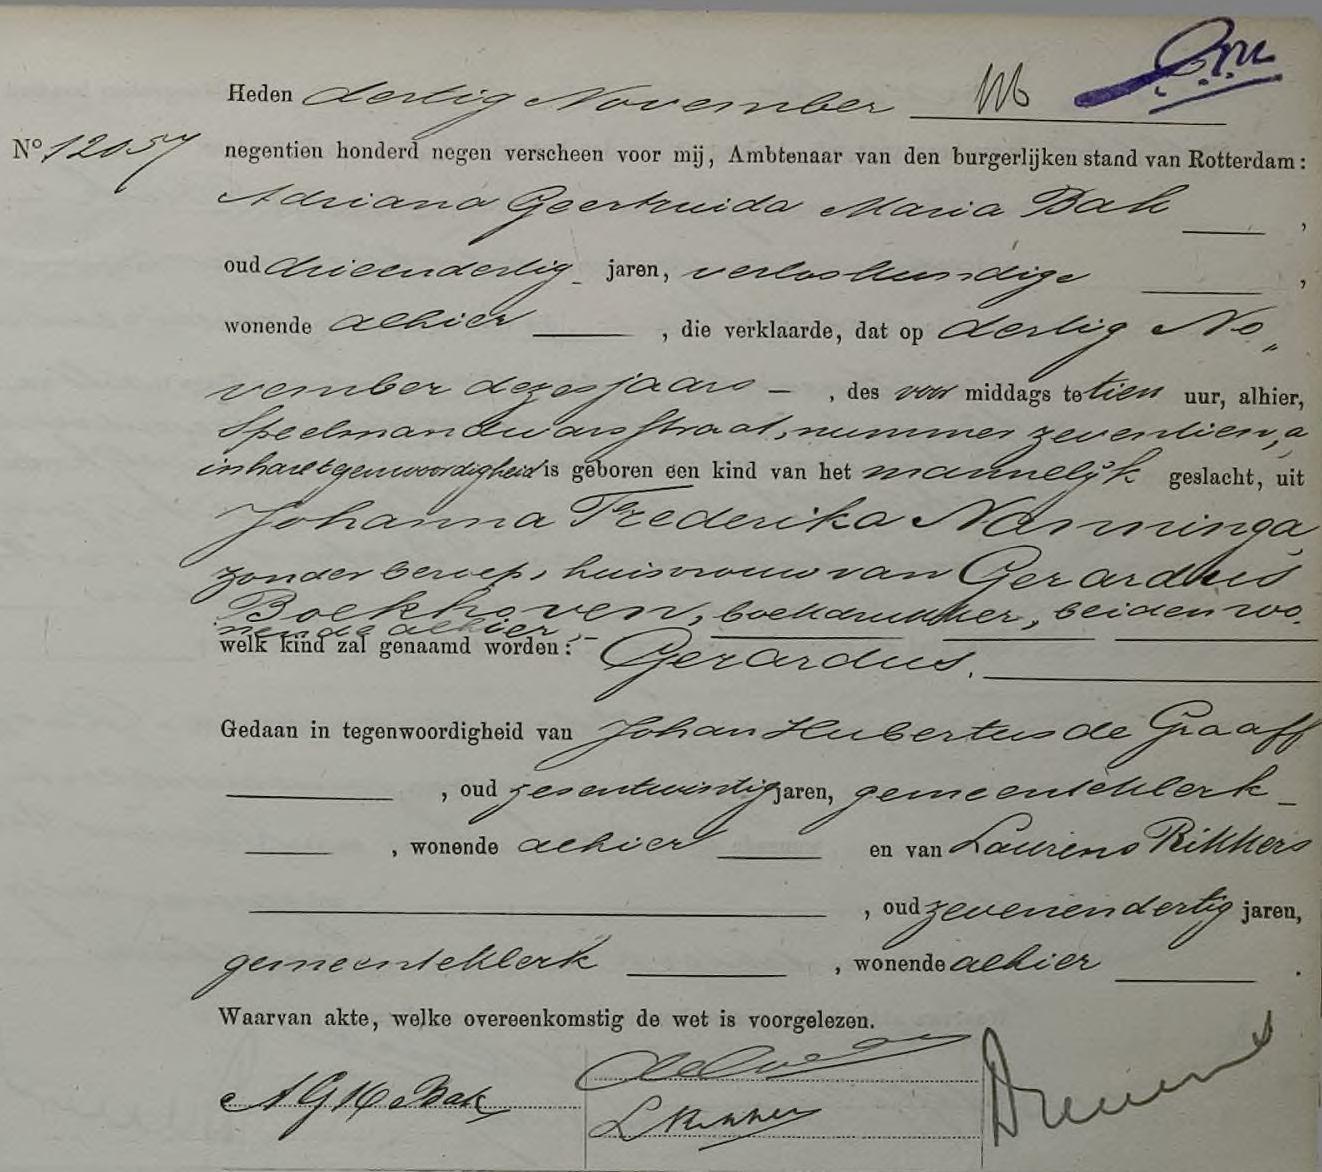 Heden dertig November
N° 12057 negentien honderd negen verscheen voor mij, Ambtenaar van den burgerlijken stand van Rotterdam:
Adriana Geertruida Maria Bak ,
oud drieendertig jaren, verloskundige ,
wonende alhier , die verklaarde, dat op dertig No„
vember dezes jaars – , des voor middags te tien uur, alhier,
Speelmandwarsstraat, nummer zeventien, a
in hare tegenwoordigheid is geboren een kind van het mannelijk geslacht, uit
Johanna Frederika Nanninga,
zonder beroep, huisvrouw van Gerardus
Boekhoven, boekdrukker, beiden wo.
nende alhier, –
welk kind zal genaamd worden: Gerardus.
Gedaan in tegenwoordigheid van Johan Hubertus de Graaff
, oud zesentwintig jaren, gemeenteklerk –
, wonende alhier en van Laurens Rikkers
, oud zevenendertig jaren,
gemeenteklerk , wonende alhier .
Waarvan akte, welke overeenkomstig de wet is voorgelezen.
A G M Bak
L Rikkers